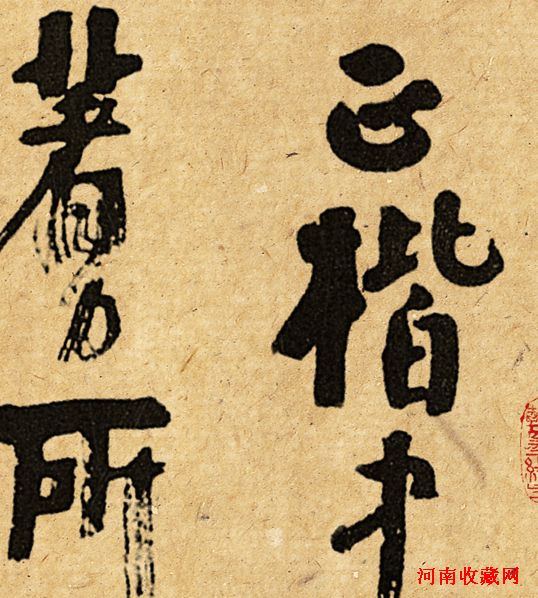 正楷才
著力所
河南收藏网